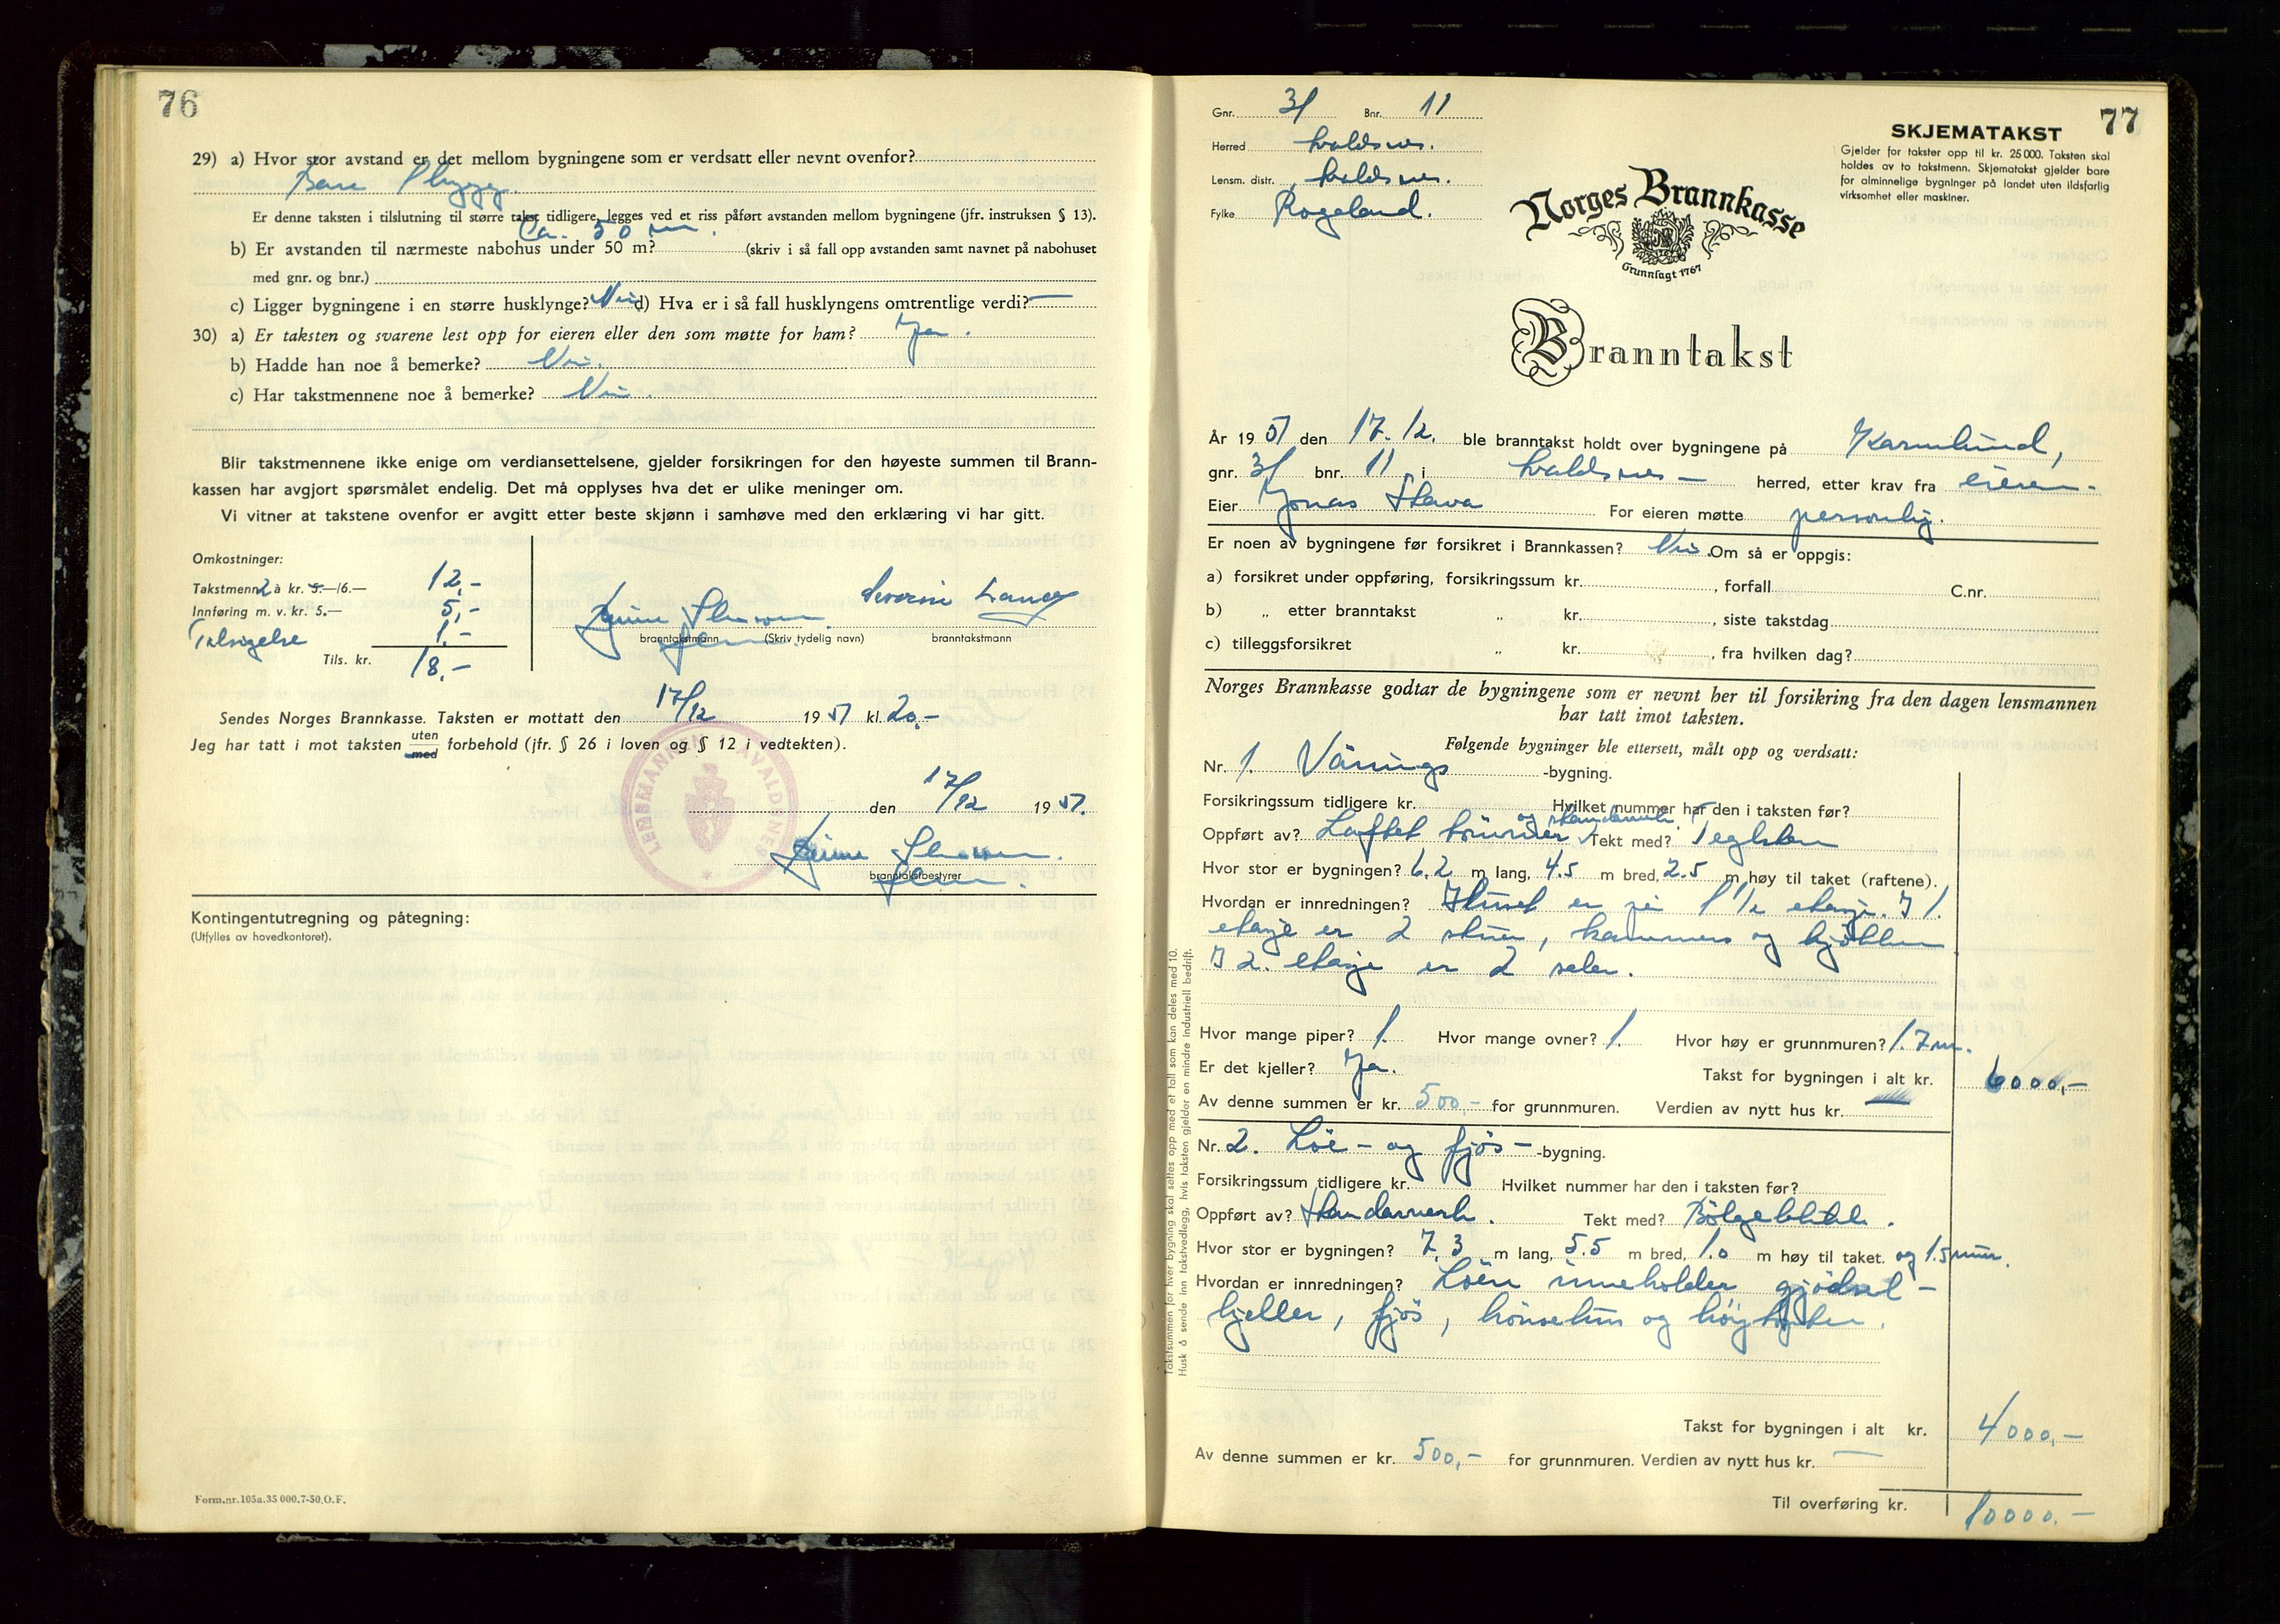 76
29) a) Hvor stor avstand er det mellom bygningene som er verdsatt eller nevnt ovenfor?
Bare 1 bygg.
Er denne taksten i tilslutning til større takst tidligere, legges ved et riss påført avstanden mellom bygningene (jfr. instruksen § 13).
Ca. 30 m.
b) Er avstanden til nærmeste nabohus under 50 m? (skriv i så fall opp avstanden samt navnet på nabohuset
med gnr. og bnr.)
c) Ligger bygningene i en større husklynge? Nei d) Hva er i så fall husklyngens omtrentlige verdi? —
30) a) Er taksten og svarene lest opp for eieren eller den som møtte for ham? Ja.
b) Hadde han noe å bemerke? Nei.
c) Har takstmennene noe å bemerke? Nei.
Blir takstmennene ikke enige om verdiansettelsene, gjelder forsikringen for den høyeste summen til Brann-
kassen har avgjort spørsmålet endelig. Det må opplyses hva det er ulike meninger om.
Vi vitner at takstene ovenfor er avgitt etter beste skjønn i samhøve med den erklæring vi har gitt.
Omkostninger:
Takstmenn 2 à kr. 5.—/6.— 12,-
Innføring m. v. kr. 5.— 5,-
Tilsigelse 1,-
Tils. kr. 18,-
branntakstmann (Skriv tydelig navn) branntakstmann
Sendes Norges Brannkasse. Taksten er mottatt den 17/12 1951 kl. 20,-
Jeg har tatt i mot taksten uten med forbehold (jfr. § 26 i loven og § 12 i vedtekten).
LENSMANNEN I AVALDSNES
den 17/12 1951.
branntakstbestyrer
Kontingentutregning og påtegning:
(Utfylles av hovedkontoret).
Form.nr.105a.35 000.7-50.O.F.
77
Gnr. 31 Bnr. 11
Herred Avaldsnes.
Lensm. distr. Avaldsnes.
Fylke Rogaland.
SKJEMATAKST
Gjelder for takster opp til kr. 25 000. Taksten skal
holdes av to takstmenn. Skjematakst gjelder bare
for alminnelige bygninger på landet uten ildsfarlig
virksomhet eller maskiner.
Norges Brannkasse
Grunnlagt 1767
Branntakst
År 1951 den 17.12. ble branntakst holdt over bygningene på Karmlund,
gnr. 31 bnr. 11 i Avaldsnes — herred, etter krav fra eieren.
Eier Jonas Stava For eieren møtte personlig.
Er noen av bygningene før forsikret i Brannkassen? Nei. Om så er oppgis:
a) forsikret under oppføring, forsikringssum kr. , forfall C.nr.
b) „ etter branntakst „ kr. , siste takstdag
c) tilleggsforsikret „ kr. , fra hvilken dag?
Norges Brannkasse godtar de bygningene som er nevnt her til forsikring fra den dagen lensmannen
har tatt imot taksten.
Følgende bygninger ble ettersett, målt opp og verdsatt:
Nr. 1. Vånings -bygning.
Forsikringssum tidligere kr. Hvilket nummer har den i taksten før?
Oppført av? Laftet tømmer og standverk. Tekt med? Teglsten
Hvor stor er bygningen? 6.2 m lang, 4.5 m bred, 2.5 m høy til taket (raftene).
Hvordan er innredningen? Huset er på 1 1/2 etasje. I 1.
etasje er 2 stuer, kammers og kjøkken
I 2. etasje er 2 saler.
Hvor mange piper? 1. Hvor mange ovner? 1. Hvor høy er grunnmuren? 1.7 m.
Er det kjeller? Ja. Takst for bygningen i alt kr. 6000,-
Av denne summen er kr. 500,- for grunnmuren. Verdien av nytt hus kr.
Nr. 2. Løe- og fjøs- -bygning.
Forsikringssum tidligere kr. Hvilket nummer har den i taksten før?
Oppført av? Standarverk. Tekt med? Bølgeblikk.
Hvor stor er bygningen? 7.3 m lang, 5.5 m bred, 1.0 m høy til taket. og 1.5 mur.
Hvordan er innredningen? Løen inneholder gjødsel-
kjeller, fjøs, hønsehus og
Takst for bygningen i alt kr. 4000,-
Av denne summen er kr. 500,- for grunnmuren. Verdien av nytt hus kr. —
Til overføring kr. 10000.-
Takstsummen for hver bygning skal settes opp med et tall som kan deles med 10.
Husk å sende inn takstvedlegg, hvis taksten gjelder en mindre industriell bedrift.